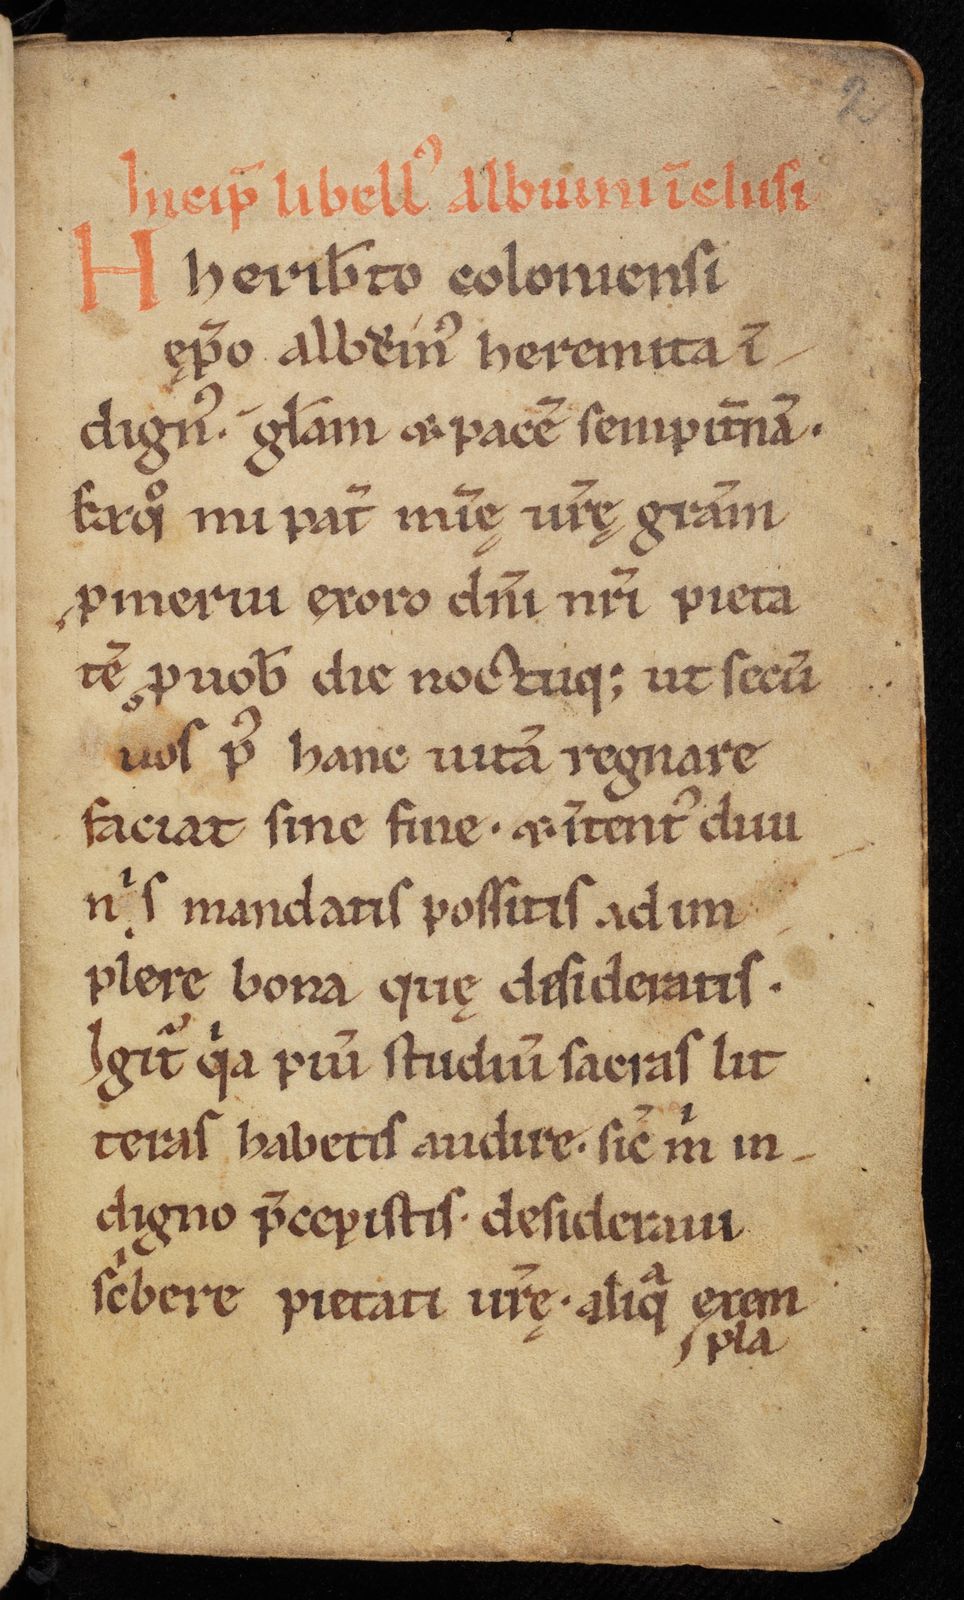 2
Incip̄ libellꝰ albuini īclusi
H herib̄to coloniensi
ęp̄o albuinꝰ heremita ī-
dignꝰ. gl̄am & pacē sempit̄nā.
Ex q̊ mi pat̄ mīę ur̄ę grām
ꝓmerui exoro dn̄i nr̄i pieta
tē ꝓ uob̄ die noctuq; ut secū
uos pꝰ hanc uitā regnare
faciat sine fine. & ītentꝰ diui
nis mandatis possitis adim
plere bona quę desideratis.
Igit᷑ qͥa piū studiū sacras lit
teras habetis audire. sic̄ mͥ in-
digno p̄cepistis. desideraui
scͥbere pietati ur̄ę. aliqͣ exem
pla